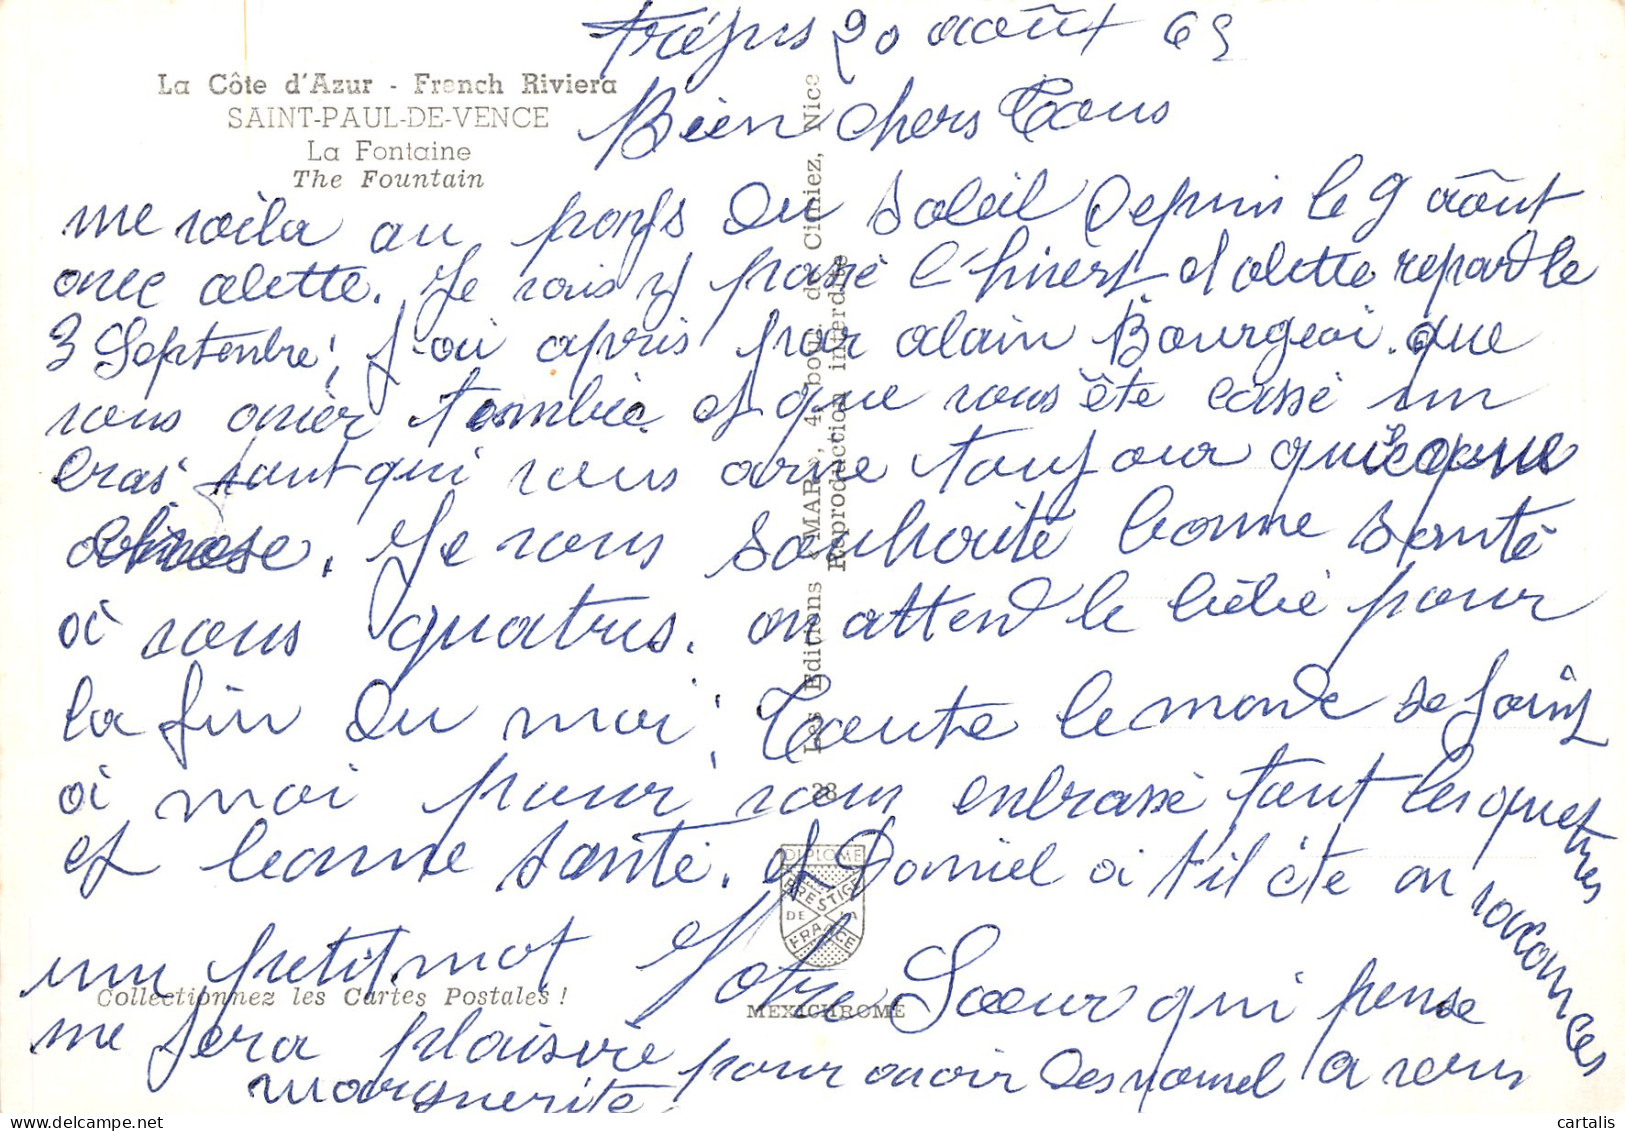 fréjus 20 août 69
La Côte d'Azur - French Riviera
SAINT-PAUL-DE-VENCE
La Fontaine
The Fountain
Bien chers Tous
me voila au pays du soleil depuis le 9 août
avec alette. Je vais y passé l'hivers et alette repard le
3 Septenbre, j'ai apris par alain Bourgeoi que
vous avier tombée et que vous ête cassé un
bras faut qui vous arive toujour quelque
chose. Je vous souhaite bonne santé
a vous quatres. on attend le bébé pour
la fin du moi, Toute le monde se joins
a moi pour vous enbrassé tout les quetres
et bonne santé. et Daniel a t'il éte en vacances
un petit mot Votre Soeur qui pense
me fera plaisire pour avoir des nouvel a vous
Marguerite
28 Les Editions «MAR», 4, boul. de Cimiez, Nice
Reproduction interdite
DIPLOME
PRESTIGE
DE LA
FRANCE
Collectionnez les Cartes Postales !
MEXICHROME
cartalis